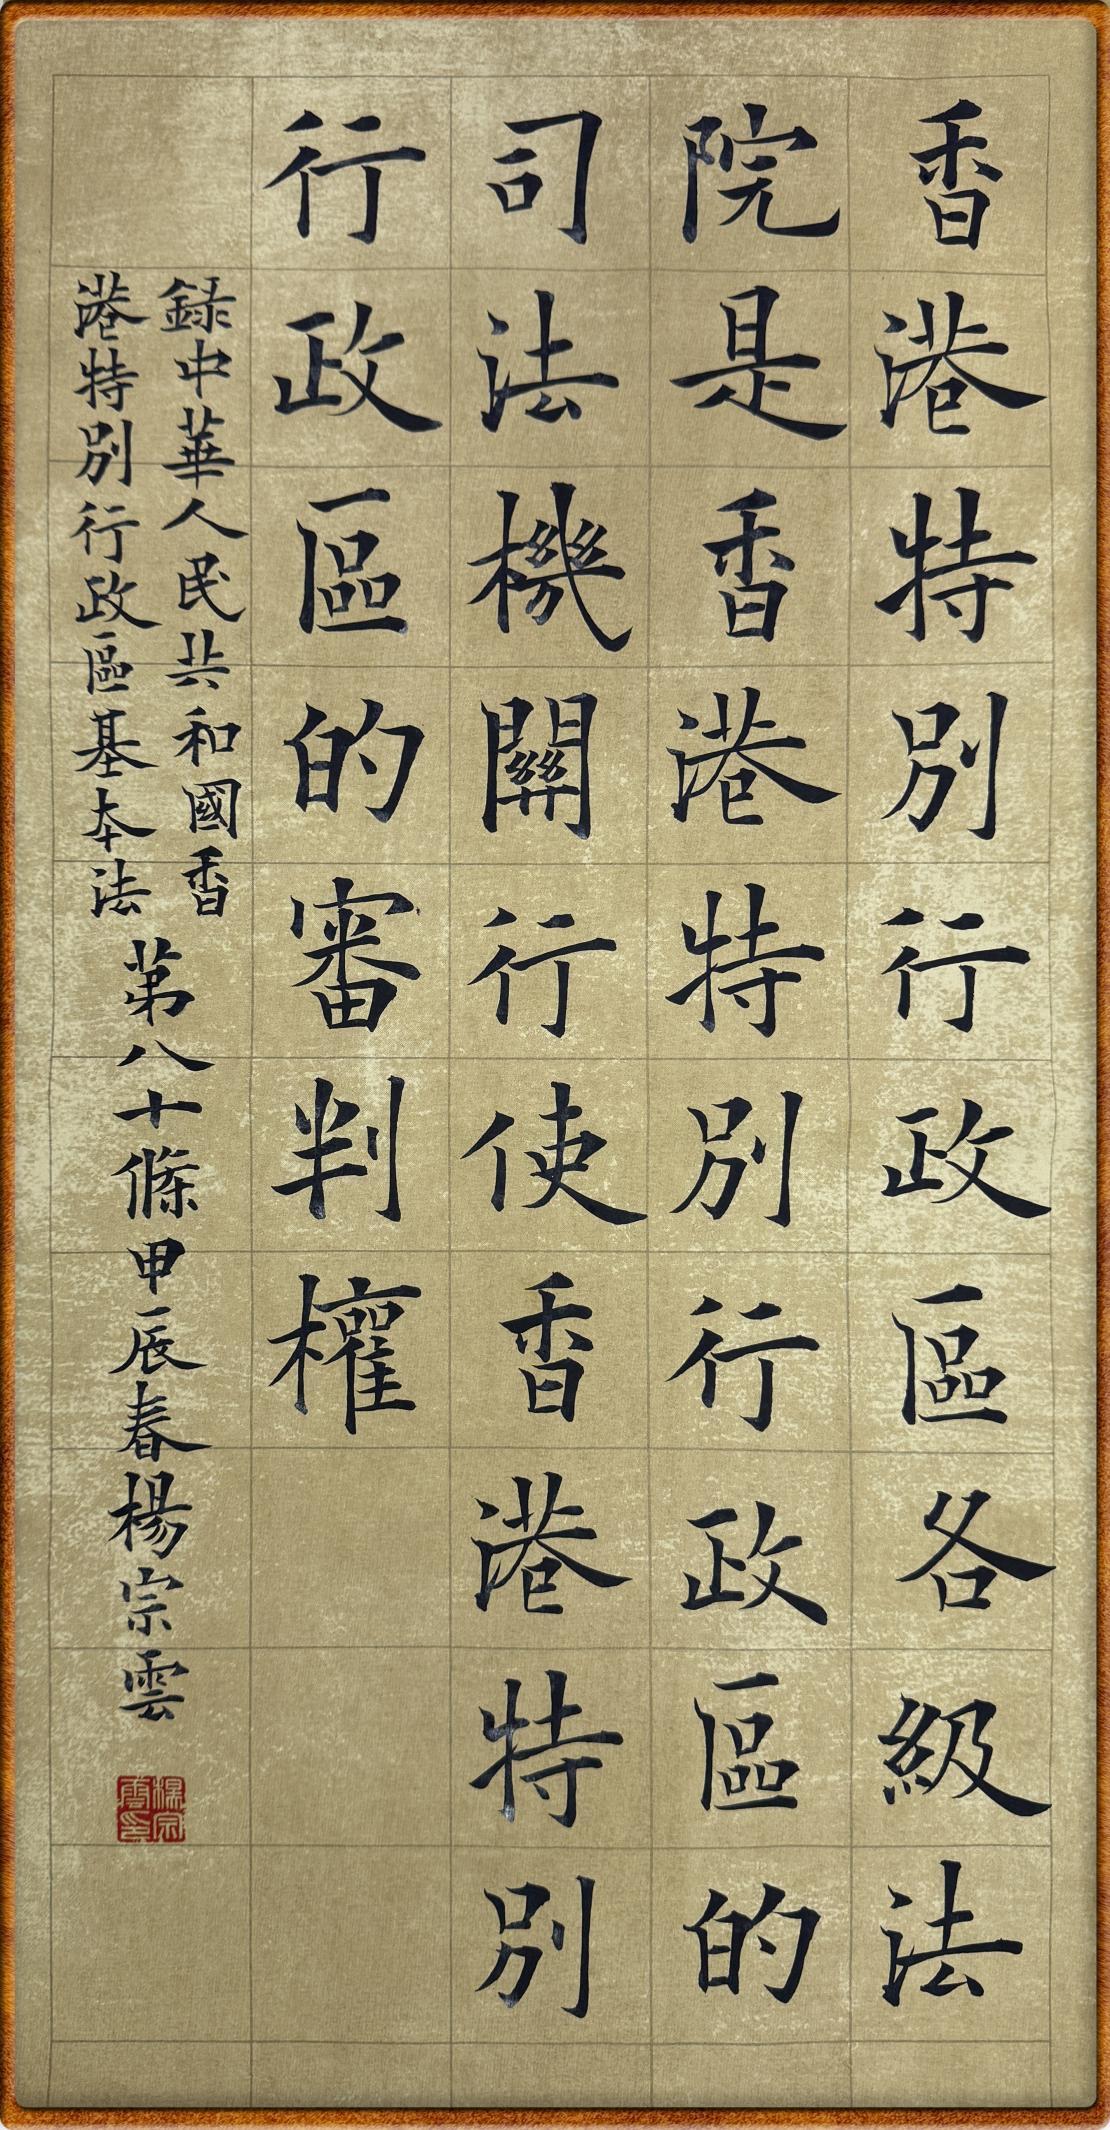 香港特別行政區各級法
院是香港特別行政區的
司法機關行使香港特別
行政區的審判權
録中華人民共和國香
港特別行政區基本法
第八十條甲辰春楊宗雲
楊宗
雲印